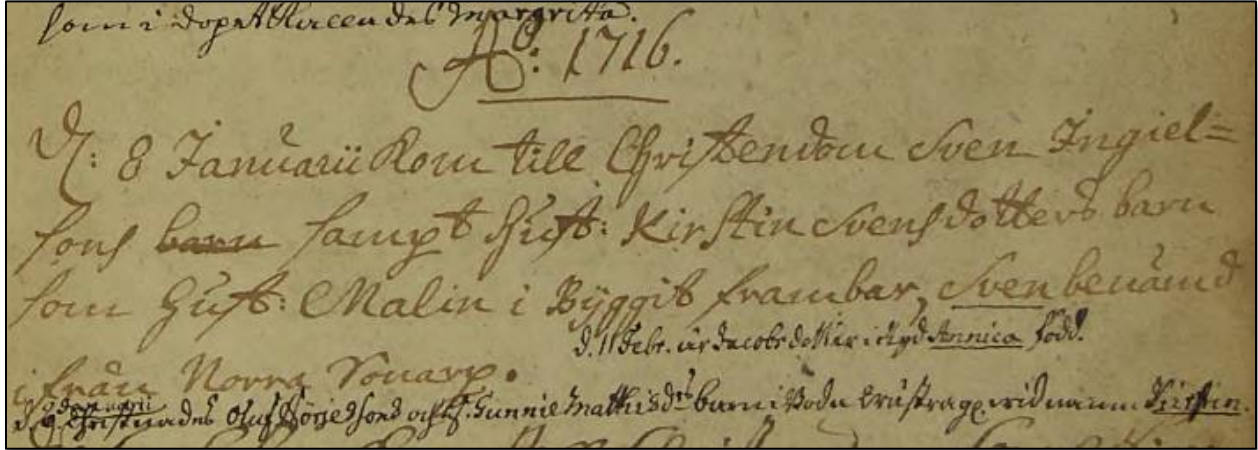 som i dopet kallades Margrita.
Ao: 1716.
D: 8 Januarii kom till Christendom Sven Ingiel=
sons barn sampt Hust: Kirstin Svensdotters barn
som Hust: Malin i Byggit frambar, Sven benämd
d. 11 Febr. är Jacobs dotter i Ryd Annica född.
ifrån Norra
Christnades Oluf Börjessons och H. Gunnie Mathisdrs barn i Boda wid namn Kirstin.